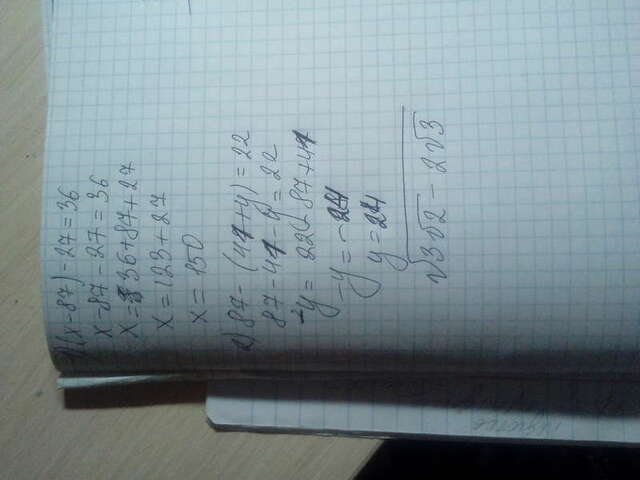 1) (x-87)-27=36
x-87-27=36
x=36+87+27
x=123+27
x=150
2) 87-(41+y)=22
87-41-y=22
-y=22-87+41
-y=-24
y=24
√(3√2 - 2√3)